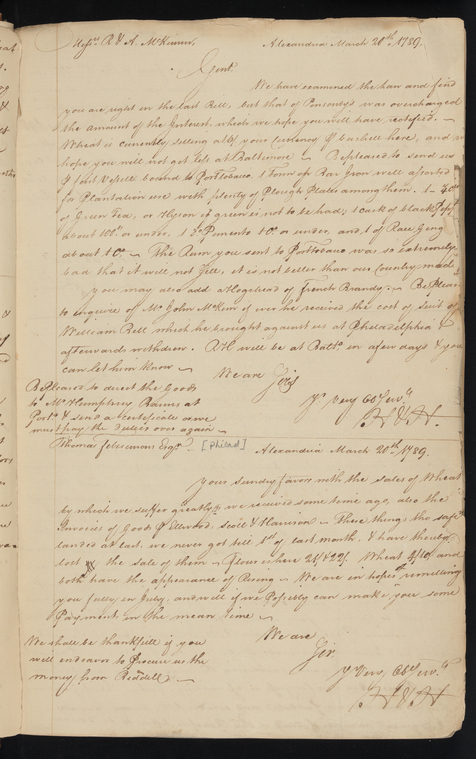 Messrs. R & A. McKim,      Alexandria March 20th, 1789.
Gent.
We have examined the law and find
you are right in the last Bill, but that of Ponsonby's was overcharged
the amount of the Interest, which we hope you will have rectified. ~
Wheat is currently selling at of your Currency P bushell here, and
hope you will not get less at Baltimore ~ Be pleased to send us
P first Vessell bound to Porttobacco 1 Tonn of Bar Iron well assorted
for Plantation use with plenty of Plough Plates among them. 1
of Green Tea, or Hyson if green is not to be had; 1 cask of black
about 100 or under, 1 Do Pimento Do. or under, and 1 of Race Ging
about Do. ~ The Rum you sent to Porttobacco was so extremely
bad that it will not sell, it is not better than our Country made
you may also add a Hogshead of French Brandy. ~ Be Pleased
to enquire of Mr. John McKim if ever he received the cost of suit of
William Bell which he brought against us at Philadelphia &
afterwards withdrew. AH will be at Balto. in a few days & you
can let him know ~
We are Gent
Be pleased to direct the Goods
to Mr Humphrey Barnes at
Yr Very Obt Servts
Porto. & send a Certificate or we
H & H.
must pay the duties over again ~
Thomas Fitzsimons Esqr. ~ [Philad]      Alexandria March 20th, 1789.
your sundry favors with the sales of Wheat
by which we suffer greatly, we received some time ago, also the
Invoice of Goods P Ellwood, & Harrison ~ These things tho safe
landed at last, we never got till 1st of last month, & have thereby
lost the sale of them ~ Flour is here 24/ & 22/. Wheat and
both have the appearance of Rising ~ We are in hopes of remitting
you fully in July, and will if we Possibly can make you some
Payment in the mean time ~
We are
We shall be thankfull if you
Sir
will endeavor to Procure us the
Yr Very Obt Servts
money from Riddell ~
H & H